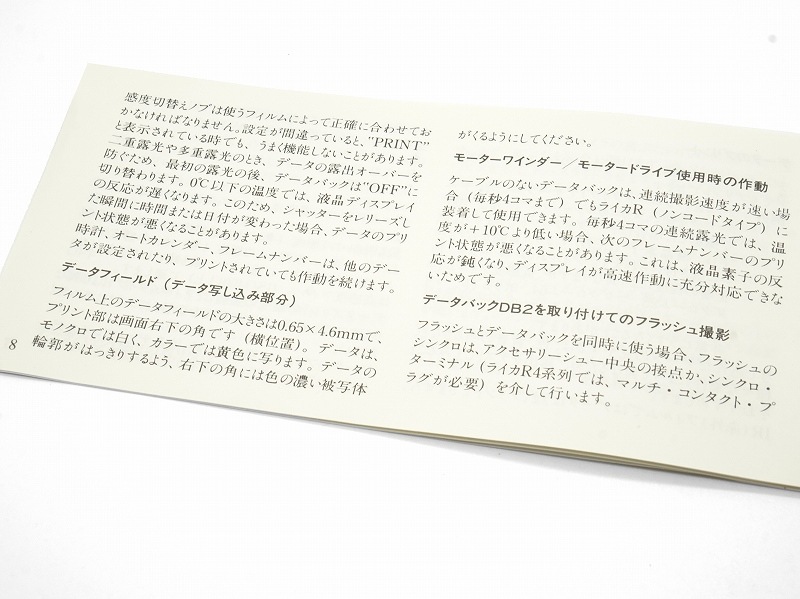 感度切替えノブは使うフィルムによって正確に合わせてお
かなければなりません。設定が間違っていると、"PRINT"
と表示されている時でも、うまく機能しないことがあります。
二重露光や多重露光のとき、データの露出オーバーを
防ぐため、最初の露光の後、データバックは"OFF"に
切り替わります。0℃以下の温度では、液晶ディスプレイ
の反応が遅くなります。このため、シャッターをレリーズし
た瞬間に時間または日付が変わった場合、データのプリ
ント状態が悪くなることがあります。
時計、オートカレンダー、フレームナンバーは、他のデー
タが設定されたり、プリントされていても作動を続けます。
データフィールド（データ写し込み部分）
フィルム上のデータフィールドの大きさは0.65×4.6mmで、
プリント部は画面右下の角です（横位置）。データは、
モノクロでは白く、カラーでは黄色に写ります。データの
輪郭がはっきりするよう、右下の角には色の濃い被写体
8
がくるようにしてください。
モーターワインダー／モータードライブ使用時の作動
ケーブルのないデータバックは、連続撮影速度が速い場
合（毎秒4コマまで）でもライカR（ノンコードタイプ）に
装着して使用できます。毎秒4コマの連続露光では、温
度が＋10℃より低い場合、次のフレームナンバーのプリ
ント状態が悪くなることがあります。これは、液晶素子の反
応が鈍くなり、ディスプレイが高速作動に充分対応できな
いためです。
データバックDB2を取り付けてのフラッシュ撮影
フラッシュとデータバックを同時に使う場合、フラッシュの
シンクロは、アクセサリーシュー中央の接点か、シンクロ・
ターミナル（ライカR4系列では、マルチ・コンタクト・プ
ラグが必要）を介して行います。